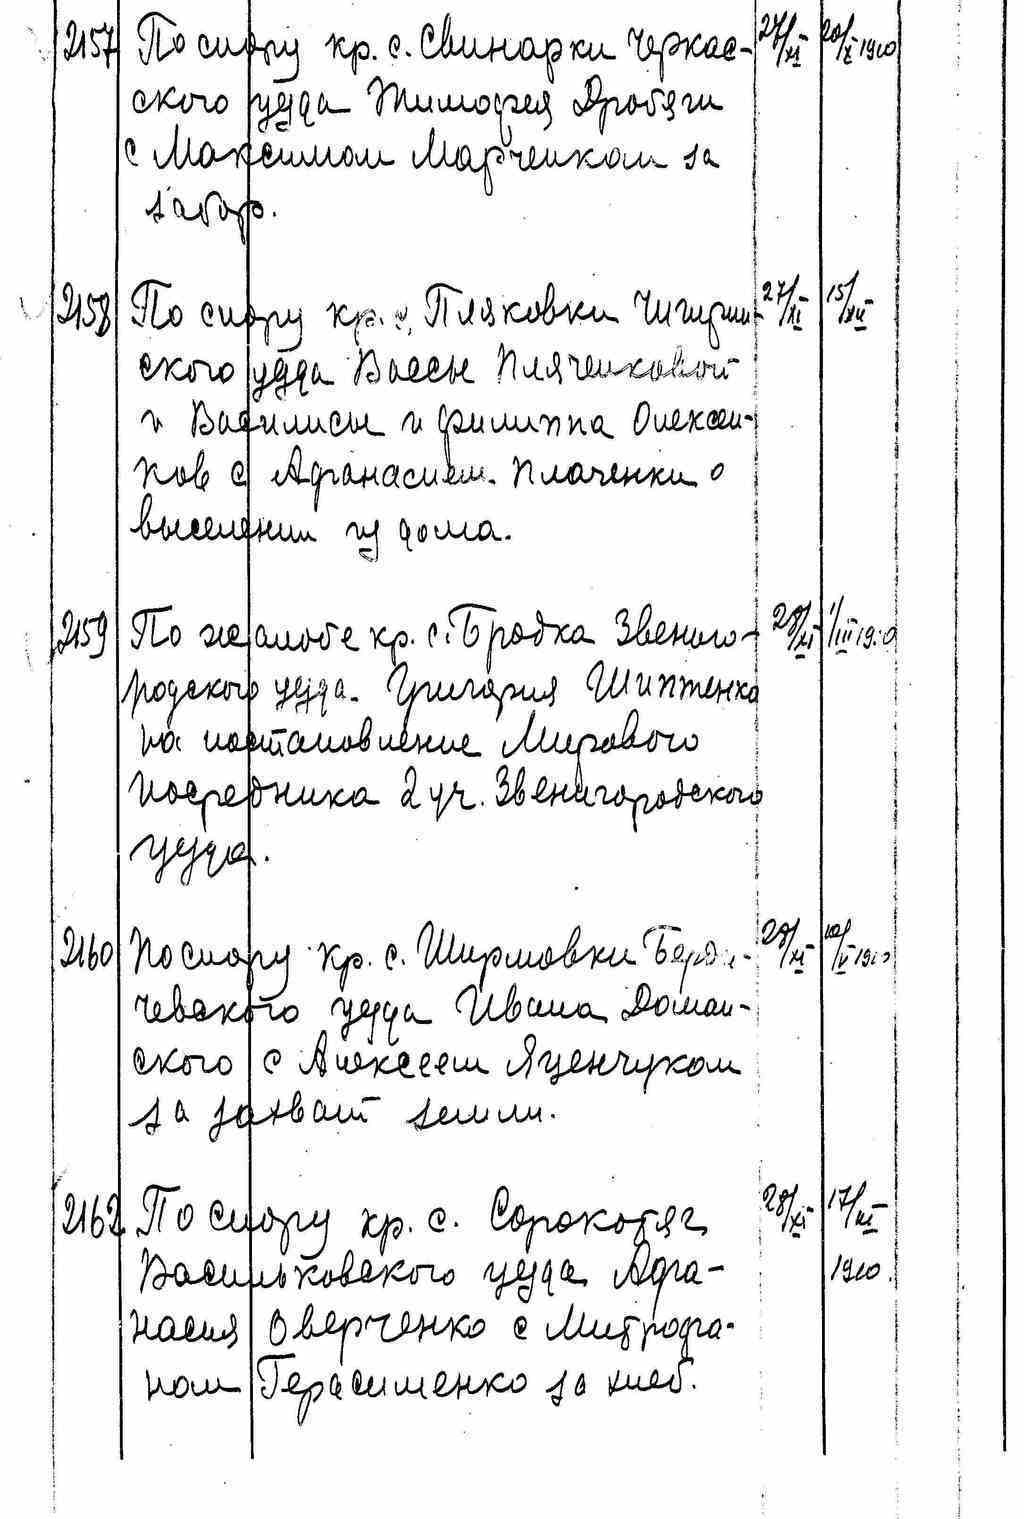 2157 По спору кр. с. Свинарки Черкас- 27/XI 20/X 1910
ского уезда Тимофея Дробяги
с Максимом Марченком за
забор.
2158 По спору кр. с. Пляковки Чигирин- 27/XI 15/XII
ского уезда Вассы Пляченковой
и Василисы и Филиппа Олексен-
ков с Афанасием Плаченки о
выселении из дома.
2159 По жалобе кр. с. Бродка Звениго- 28/XI 1/III 1910
родского уезда Григория Шиптенка
на постановление Мирового
посредника 2 уч. Звенигородского
уезда.
2160 По спору кр. с. Ширмовки Берди- 28/XI
чевского уезда Ивана Доман-
ского с Алексеем Яценчуком
за захват земли.
2162 По спору кр. с. Сорокотяг 28/XI
Васильковского уезда Афа- 1910.
насия Оверченко с Митрофа-
ном Герасименко за хлеб.